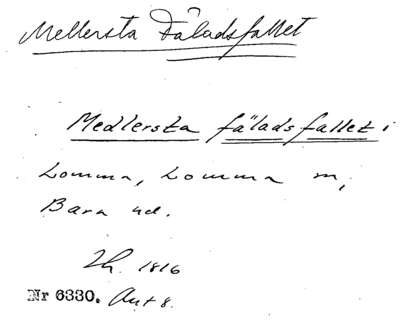 Mellersta Fäladsfallet
Medlersta fäladsfallet i
Lomma, Lomma m,
Bara hd.
Lh. 1816
Nr 6330. Akt 8.